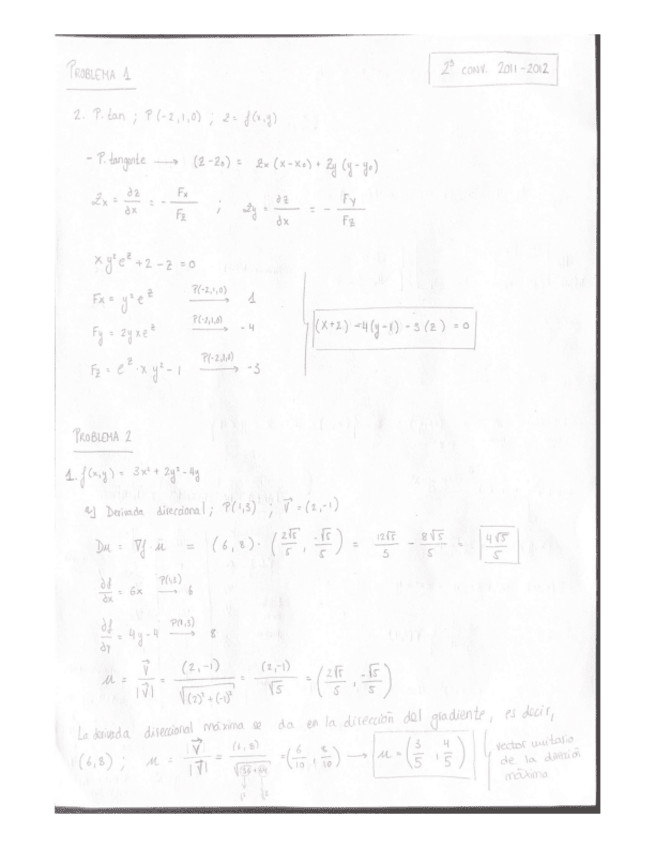 PROBLEMA 1
2ª CONV. 2011-2012
2. P. tan ; P(-2,1,0) ; z = f(x,y)
- P. tangente → (z-z₀) = zx (x-x₀) + zy (y-y₀)
zx = ∂z/∂x = - Fx/Fz ; zy = ∂z/∂x = - Fy/Fz
x y² e^z + 2 - z = 0
Fx = y² e^z P(-2,1,0) → 1
Fy = 2y x e^z P(-2,1,0) → -4
Fz = e^z · x y² - 1 P(-2,1,0) → -3
(x+2) -4(y-1) -3(z) = 0
PROBLEMA 2
1. f(x,y) = 3x² + 2y² - 4y
a) Derivada direccional ; P(1,3) ; v⃗ = (2,-1)
Du = ∇f · ū = (6,8) · (2√5/5, -√5/5) = 12√5/5 - 8√5/5 = 4√5/5
∂f/∂x = 6x P(1,3) → 6
∂f/∂y = 4y-4 P(1,3) → 8
u = v⃗/|v⃗| = (2,-1)/√((2)²+(-1)²) = (2,-1)/√5 = (2√5/5, -√5/5)
La derivada direccional máxima se da en la dirección del gradiente, es decir,
(6,8) ; u = |v⃗|/|v⃗| = (6,8)/√(36+64) = (6/10, 8/10) → u = (3/5, 4/5)
vector unitario
de la dirección
máxima